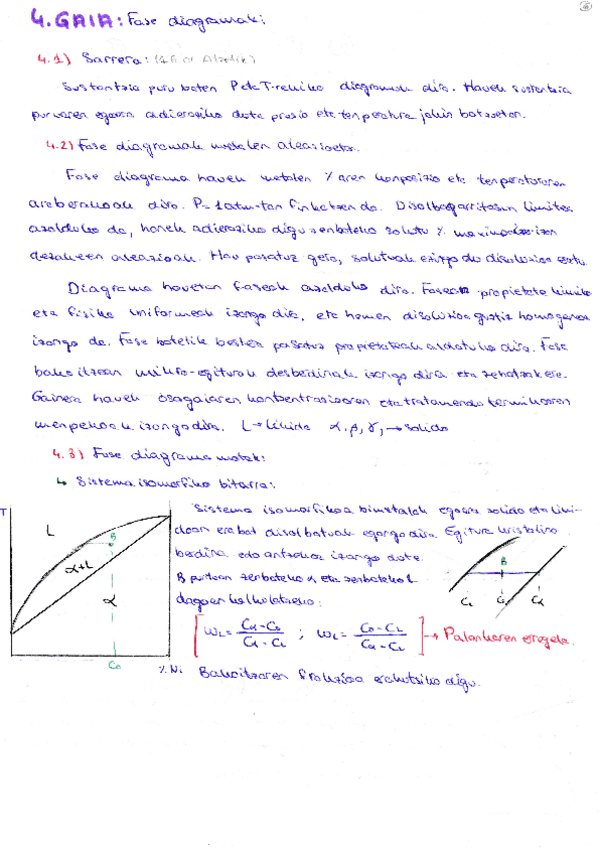 4. GAIA: Fase diagramak:
4.1) Sarrera:
Sustantzia puru baten P eta T-rekiko diagramak dira. Hauek sustantzia
puruaren egoera adieraziko dute presio eta tenperatura jakin batzuetan.
4.2) Fase diagramak metalen aleazioetan.
Fase diagrama hauek metalen %aren konposizio eta tenperaturaren
araberakoak dira. P=1atm-tan finkatzen da. Disolbagarritasun limitea
azalduko da, honek adieraziko digu zenbateko solutu % maximo izan
dezakeen aleazioak. Hau pasatuz gero, solutuak ez du disoluzioa
Diagrama hauetan faseak azalduko dira. Faseak propietate kimiko
eta fisiko uniformeak izango dira, eta hemen disoluzioa guztiz homogeneoa
izango da. Fase batetik bestera pasatuz propietateak aldatuko dira. Fase
bakoitzean mikro-egiturak desberdinak izango dira eta zehatzak ere.
Gainera hauek osagaiaren kontzentrazioaren eta tratamendu termikoaren
menpekoak izango dira. L → likido α, β, γ, → solido
4.3) Fase diagrama motak:
↳ Sistema isomorfiko bitarra:
T
L
B
α+L
α
C₀
% Ni
Sistema isomorfikoa bi metalak egoera solido eta liki-
doan erabat disolbatuak egongo dira. Egitura kristalino
berdina edo antzekoa izango dute.
B puntuan zenbateko α eta zenbateko L
dagoen kalkulatzeko:
B
C_L C₀ C_α
[ W_L = (C_α - C₀)/(C_α - C_L) ; W_L = (C₀ - C_L)/(C_α - C_L) ] → Palankaren erregela.
Bakoitzaren frakzioa erakutsiko digu.